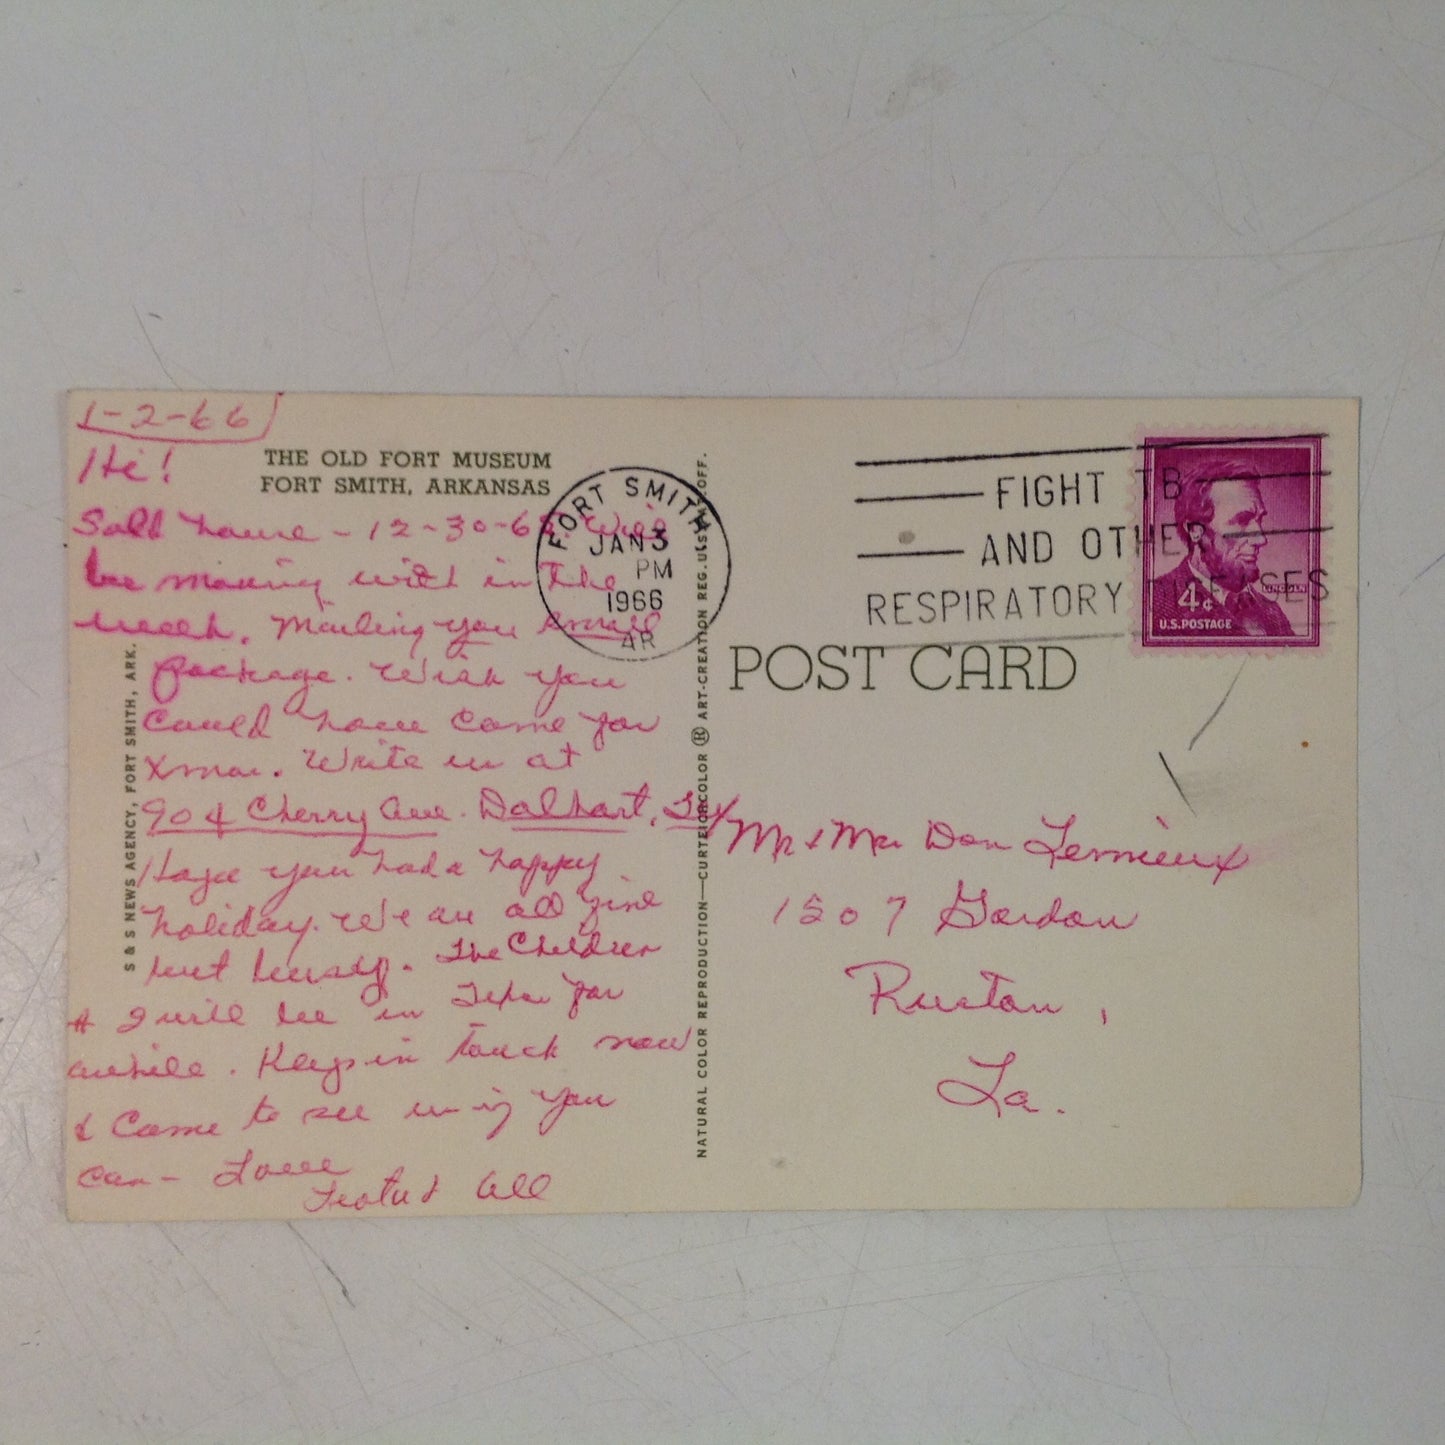 1-2-66
Hi!
THE OLD FORT MUSEUM
FORT SMITH, ARKANSAS
Sold house - 12-30-65.
be moving with in the
week. Mailing you small
package. Wish you
could have come for
Xmas. Write us at
904 Cherry Ave. Dalhart, Tex
Hope you had a happy
holiday. We are all fine
but busy. The Children
& I will be in Texas for
awhile. Keep in touch now
& come to see us if you
can - Love
& All
S & S NEWS AGENCY, FORT SMITH, ARK.
NATURAL COLOR REPRODUCTION—CURTEICHCOLOR ® ART-CREATION REG. U.S. PAT. OFF.
FORT SMITH
JAN 3
PM
1966
AR
FIGHT TB
AND OTHER
RESPIRATORY DISEASES
LINCOLN
4¢
U.S. POSTAGE
POST CARD
Mr & Mrs Don Lemieux
1507 Gordon
Ruston,
La.